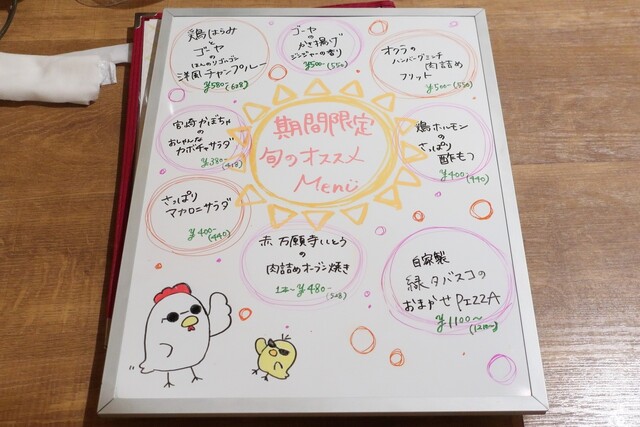 鶏はらみ
と
ゴーヤ
の
ほんのりゴルゴン
洋風チャンプルー
¥580(638)
ゴーヤ
の
かき揚げ
ジンジャーの香り
¥500-(550)
オクラの
ハンバーグミンチ
肉詰め
フリット
¥500-(550)
期間限定
旬のオススメ
Menü
宮崎かぼちゃ
の
おしゃんな
カボチャサラダ
¥380-
(418)
鶏ホルモン
の
さっぱり
酢もつ
¥400(440)
さっぱり
マカロニサラダ
¥400-
(440)
赤万願寺とうとう
の
肉詰めオーブン焼き
1本~¥480-
(528)
自家製
緑タバスコの
おまかせPIZZA
¥1100~